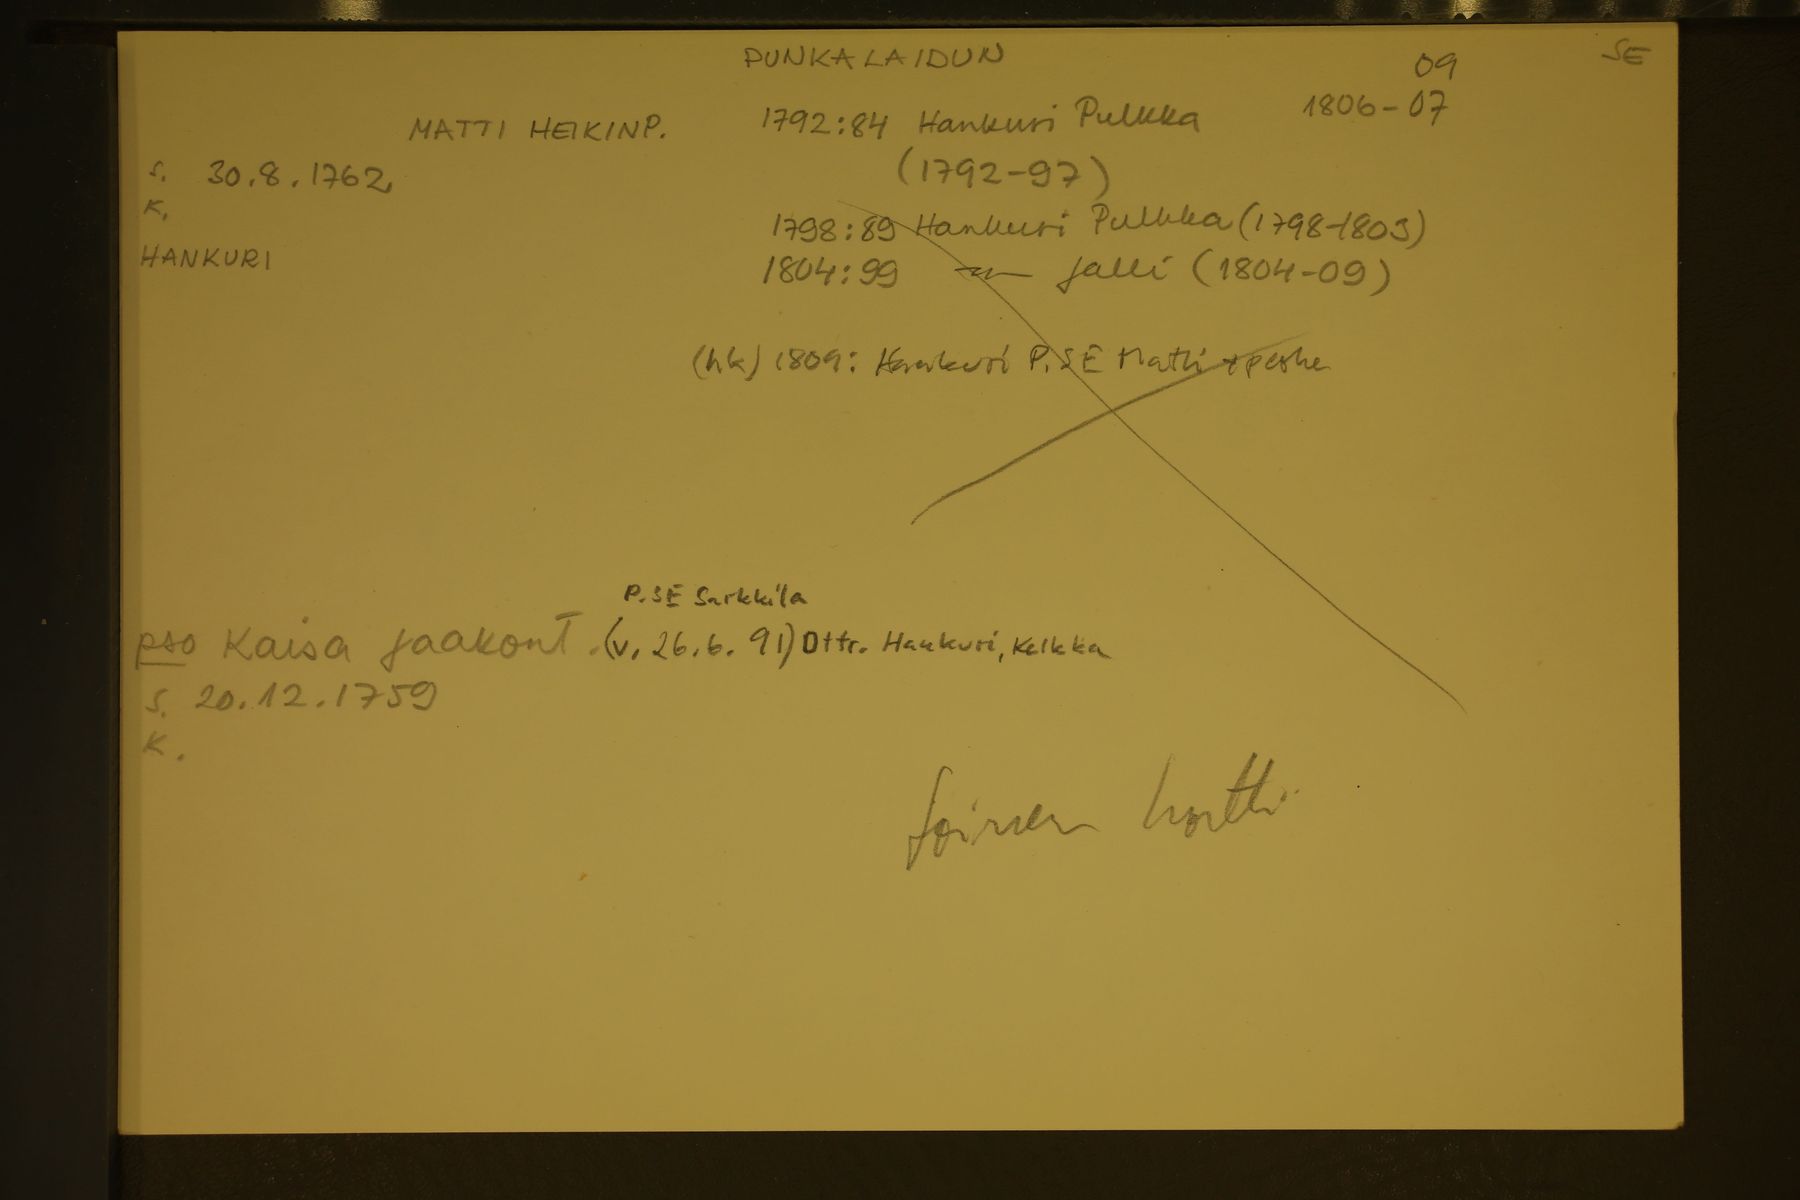 PUNKALAIDUN 09 SE
MATTI HEIKINP. 1792:84 Hankuri Pulkka 1806-07
(1792-97)
s. 30.8.1762
K.
1798:89 Hankuri Pulkka (1798-1803)
HANKURI
1804:99 —"— Jalli (1804-09)
(hk) 1809: Hankuri P.SE Matti + perhe
P.SE Sarkkila
pso Kaisa Jaakont. (v. 26.6.91) Dttr. Hankuri, Kelkka
s. 20.12.1759
K.
kortti